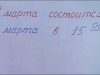 марта состоится
марта в 15 00